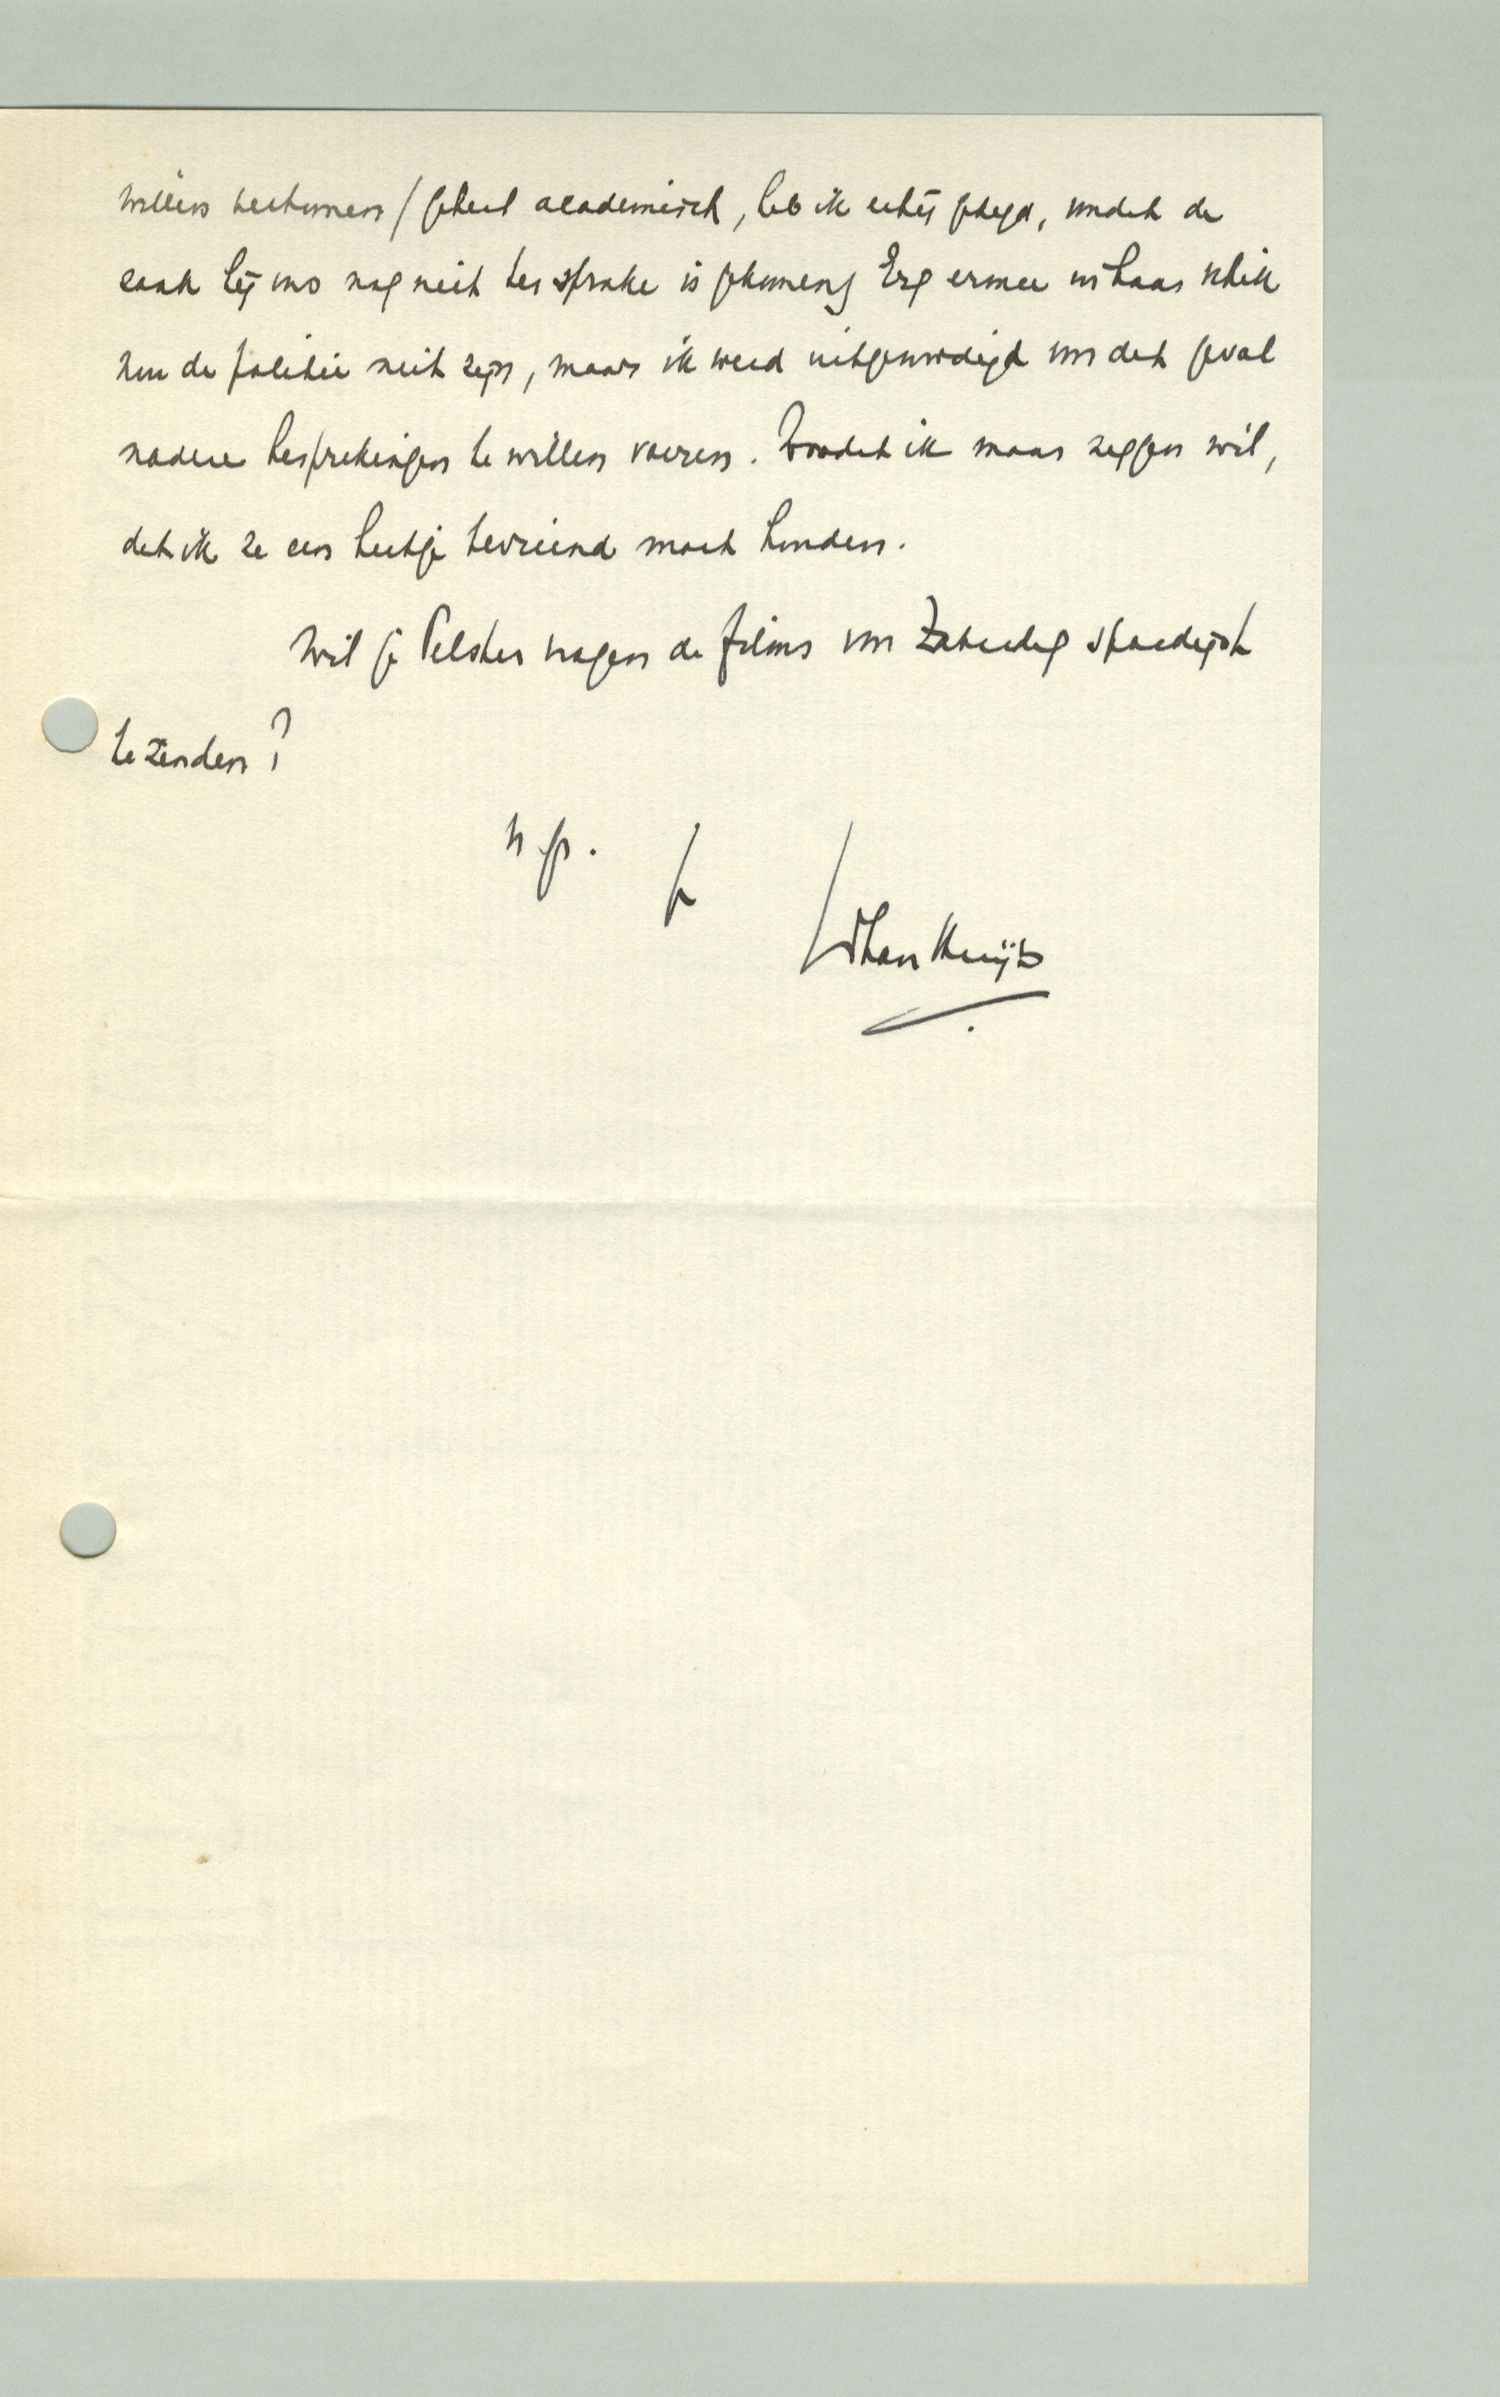 willen verhuren / geheel academisch, heb ik erbij gezegd, omdat de
zaak bij ons nog niet ter sprake is gekomen) Erg ermee in haar schik
zou de politie niet zijn, maar ik werd uitgenoodigd om dat geval
nadere besprekingen te willen voeren. Zoodat ik maar zeggen wil,
dat ik ze een beetje bevriend moet houden.
Wil je Pelster vragen de films van Zaterdag spoedigst
te zenden?
n gr.
Johan Huijts